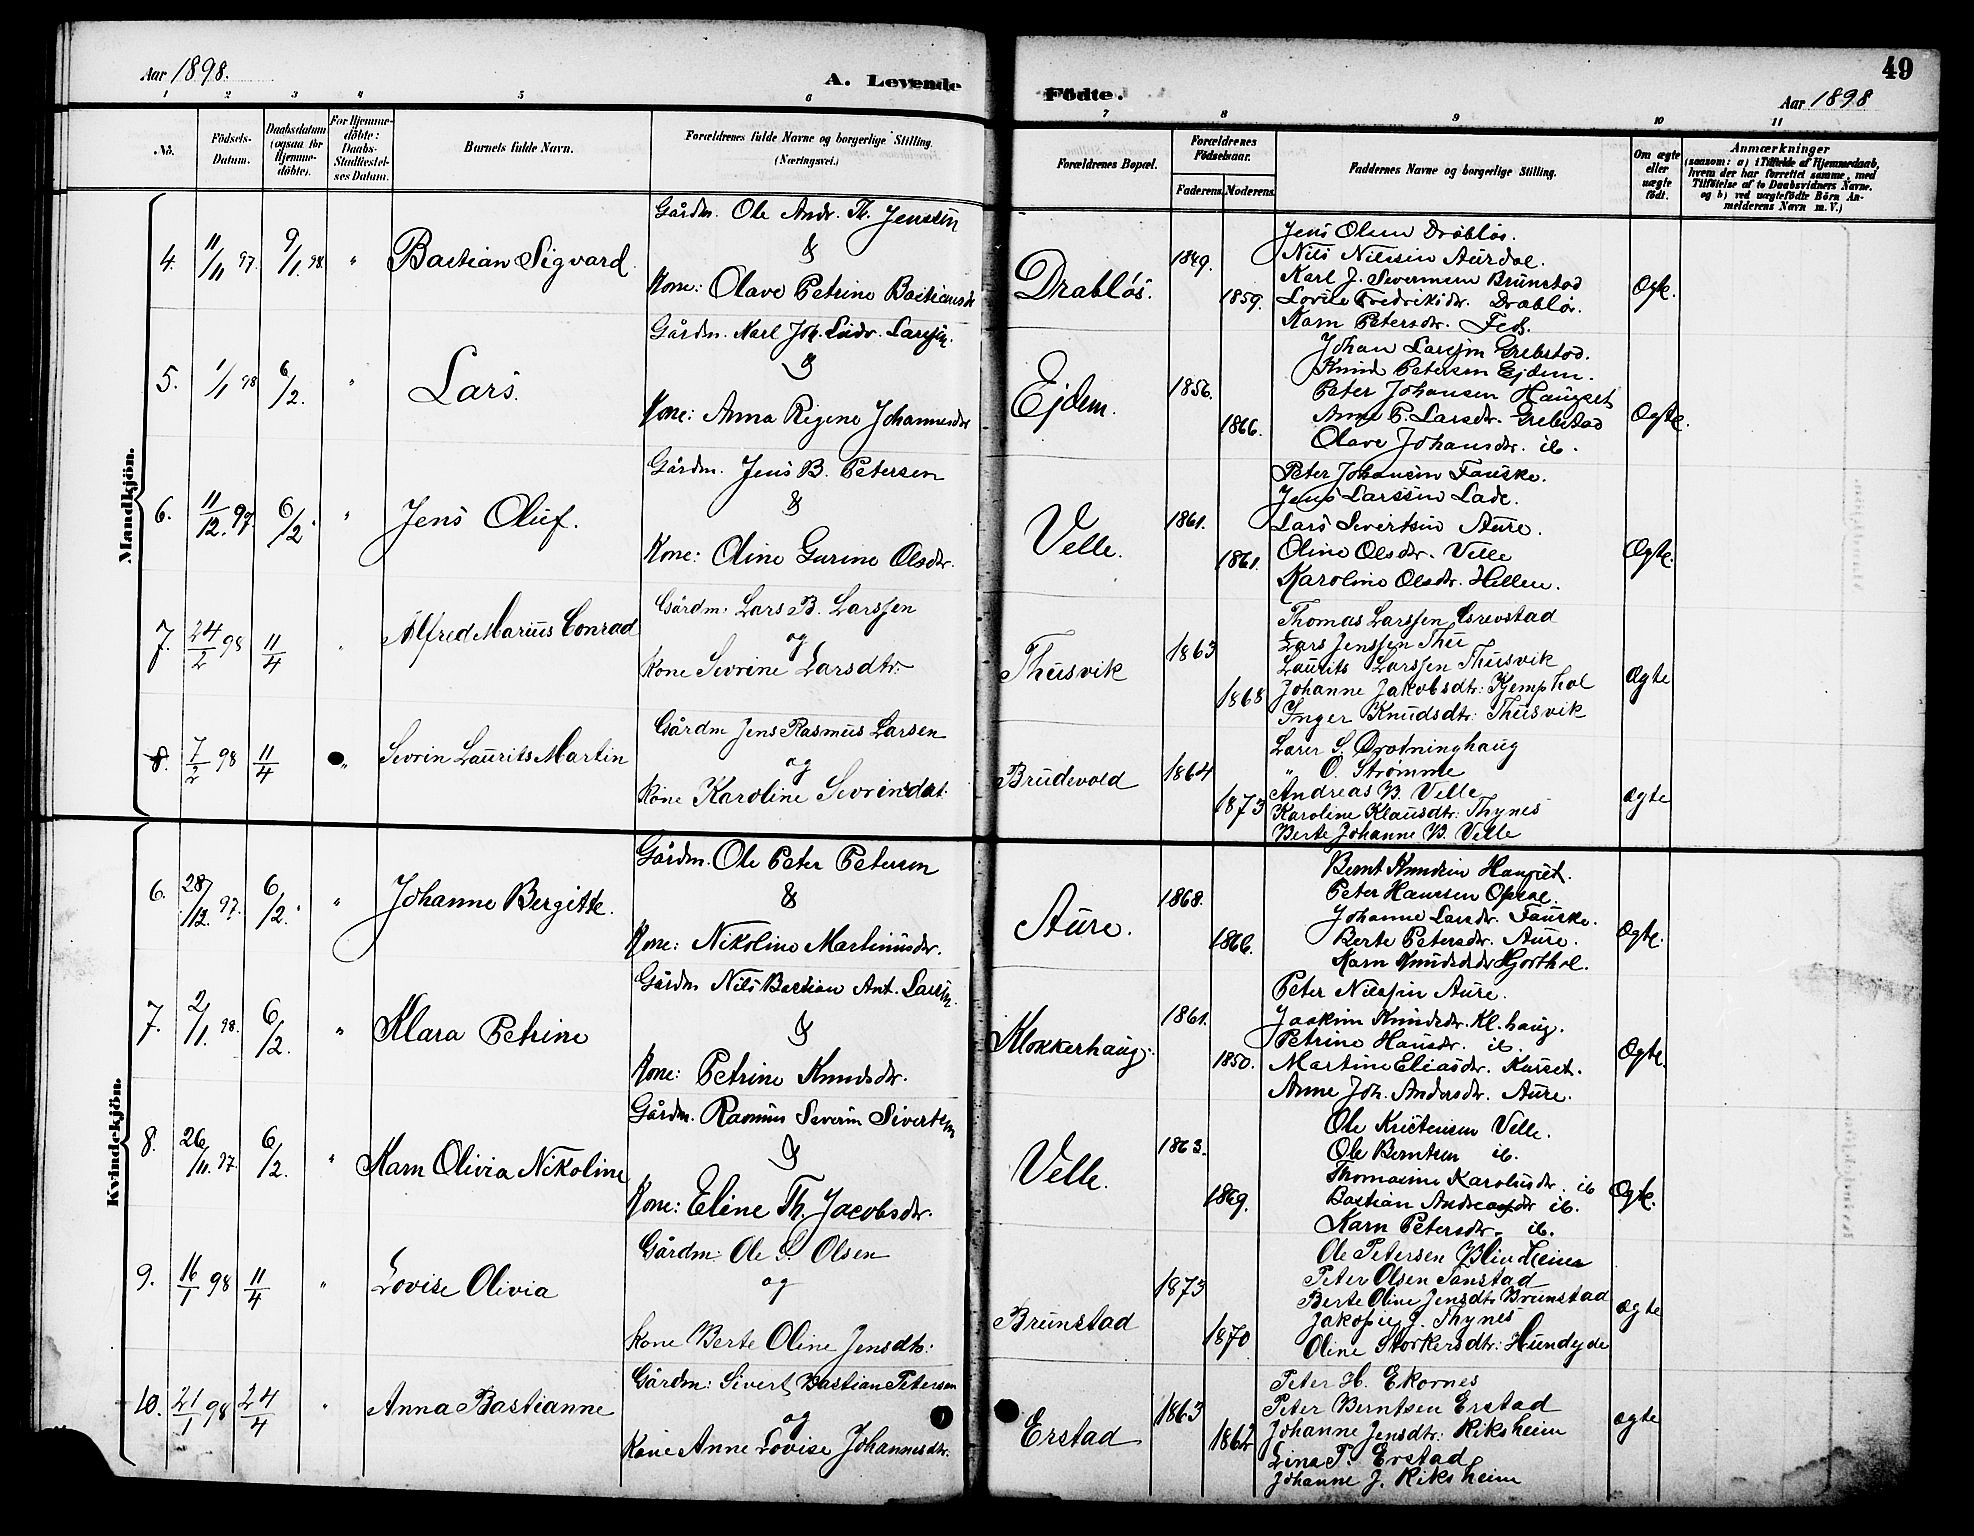 Aar 1898.
A. Levende
Födte.
49
Aar 1898
1 2 3 4 5 6 7 8 9 10 11
No.
Födsels-Datum.
Daabsdatum (ogsaa for Hjemmedöbte).
For Hjemmedöbte: Daabs-Stadfæstelses Datum.
Barnets fulde Navn.
Forældrenes fulde Navne og borgerlige Stilling. (Næringsvei.)
Forældrenes Bopæl.
Forældrenes Födselsaar.
Faderens. Moderens.
Faddernes Navne og borgerlige Stilling.
Om ægte eller uægte födt.
Anmærkninger
(saasom: a) i Tilfælde af Hjemmedaab, hvem der har forrettet samme, med Tilföielse af to Daabsvidners Navne. og b) ved uægtefödte Börn Anmelderens Navn m. V.)
Mandkjön.
4. 11/11 97. 9/1. 98. " Bastian Sigvard
Gårdm. Ole Andr. Th. Jenssen
&
Kone: Olave Petrine Bastiansdr
Drabløs. 1849. 1859.
Jens Olsen Drabløs.
Nils Nilssen Aurdal.
Karl J. Severinsen Brunstad
Lovise Fredriksdr. Drabløs.
Karn Petersdr. Fedt.
Ægte.
5. 1/1 98 6/2. " Lars.
Gårdm. Karl Joh. Ludv. Larssen.
&
Kone: Anna Regine Johannesdr
Ejdem. 1856. 1866.
Johan Larssen Grebstad.
Knud Petersen Ejdem.
Peter Johansen Haugset
Anne P. Larsdr. Grebstad
Olave Johansdr. ib.
Ægte.
6. 11/12. 97. 6/2. " Jens Oluf.
Gårdm. Jens B. Petersen
&
Kone: Oline Gurine Olsdr.
Velle. 1861. 1861.
Peter Johansen Fauske.
Jens Larssen Lade.
Lars Sivertsen Aure.
Oline Olsdr. Velle
Karoline Olsdr. Hellen.
Ægte.
7. 24/2 98 11/4 " Alfred Marius Conrad
Gårdm. Lars B. Larssen
og
Kone Sevrine Larsdtr.
Thusvik 1863 1868
Thomas Larssen Grevstad
Lars Jenssen Thu
Laurits Larssen Thusvik
Johanne Jakobsdtr: Kjemphol
Inger Knudsdtr: Thusvik
Ægte
8. 7/2 98 11/4 " Sevrin Laurits Martin
Gårdm Jens Rasmus Larsen
og
Kone Karoline Sevrindat.
Brudevold 1864 1873
Laur. S. Drotninghaug
" O. Strømme
Andreas B. Velle
Karoline Klausdtr: Thynes
Berte Johanne B. Velle
ægte
Kvindekjön.
6. 28/12. 97. 6/2. " Johanne Bergitte.
Gårdm. Ole Peter Petersen
&
Kone: Nikoline Martinusdr.
Aure. 1868. 1866.
Bernt Knudsen Haugset.
Peter Hanssen Opsal.
Johanne Larsdr. Fauske.
Berte Petersdr. Aure.
Karn Knudsdr Hjorthol.
Ægte.
7. 2/1. 98. 6/2. " Klara Petrine
Gårdm. Nils Bastian Ant. Larsen.
&
Kone: Petrine Knudsdr.
Klokkerhaug. 1861. 1850.
Peter Nilssen Aure.
Joakim Knudsdr. Kl.haug.
Petrine Hansdr. ib.
Martine Eliasdr. Kurset.
Anne Joh. Andersdr. Aure.
Ægte.
8. 26/11. 97. 6/2. " Karn Olivia Nikoline
Gårdm. Rasmus Severin Sivertsen
&
Kone: Eline Th. Jacobsdr.
Velle. 1863. 1869.
Ole Kristensen Velle.
Ole Berntsen ib.
Thomasine Karolusdr. ib
Bastian Andreasdr ib.
Karn Petersdr. ib.
Ægte.
9. 16/1 98 11/4 " Lovise Olivia
Gårdm: Ole S. Olsen
og
Kone Berte Oline Jensdtr:
Brunstad 1873 1870
Ole Petersen Blindheim
Peter Olsen Tanstad
Berte Oline Jensdtr Brunstad
Jakop J. Thynes
Oline Storkersdtr: Hundejde
ægte
10. 21/1 98 24/4 " Anna Bastianne
Gårdm: Sivert Bastian Petersen
og
Kone Anne Lovise Johannesdtr.
Erstad 1863 1862
Peter H. Ekornes
Peter Berntsen Erstad
Johanne Jensdtr: Riksheim
Lina P. Erstad
Johanne J. Riksheim
ægte